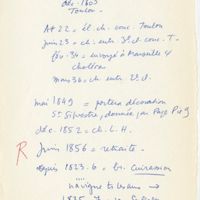 déc. 1803
Toulon
Aôt 22 = él. ch. conc. Toulon
juin 23 = ch. entr. 3e cl. conc. T.
fév. 34 = envoyé à Marseille 4
choléra
mars 36 = ch. entr. 2e cl.
mai 1849 = portera décoration
St Silvestre, donnée par Pape Pie 9
déc. 1852 = ch. L.H.
R Juin 1856 = retraite.
depuis 1823.6 = br. Cuirassier
navigue